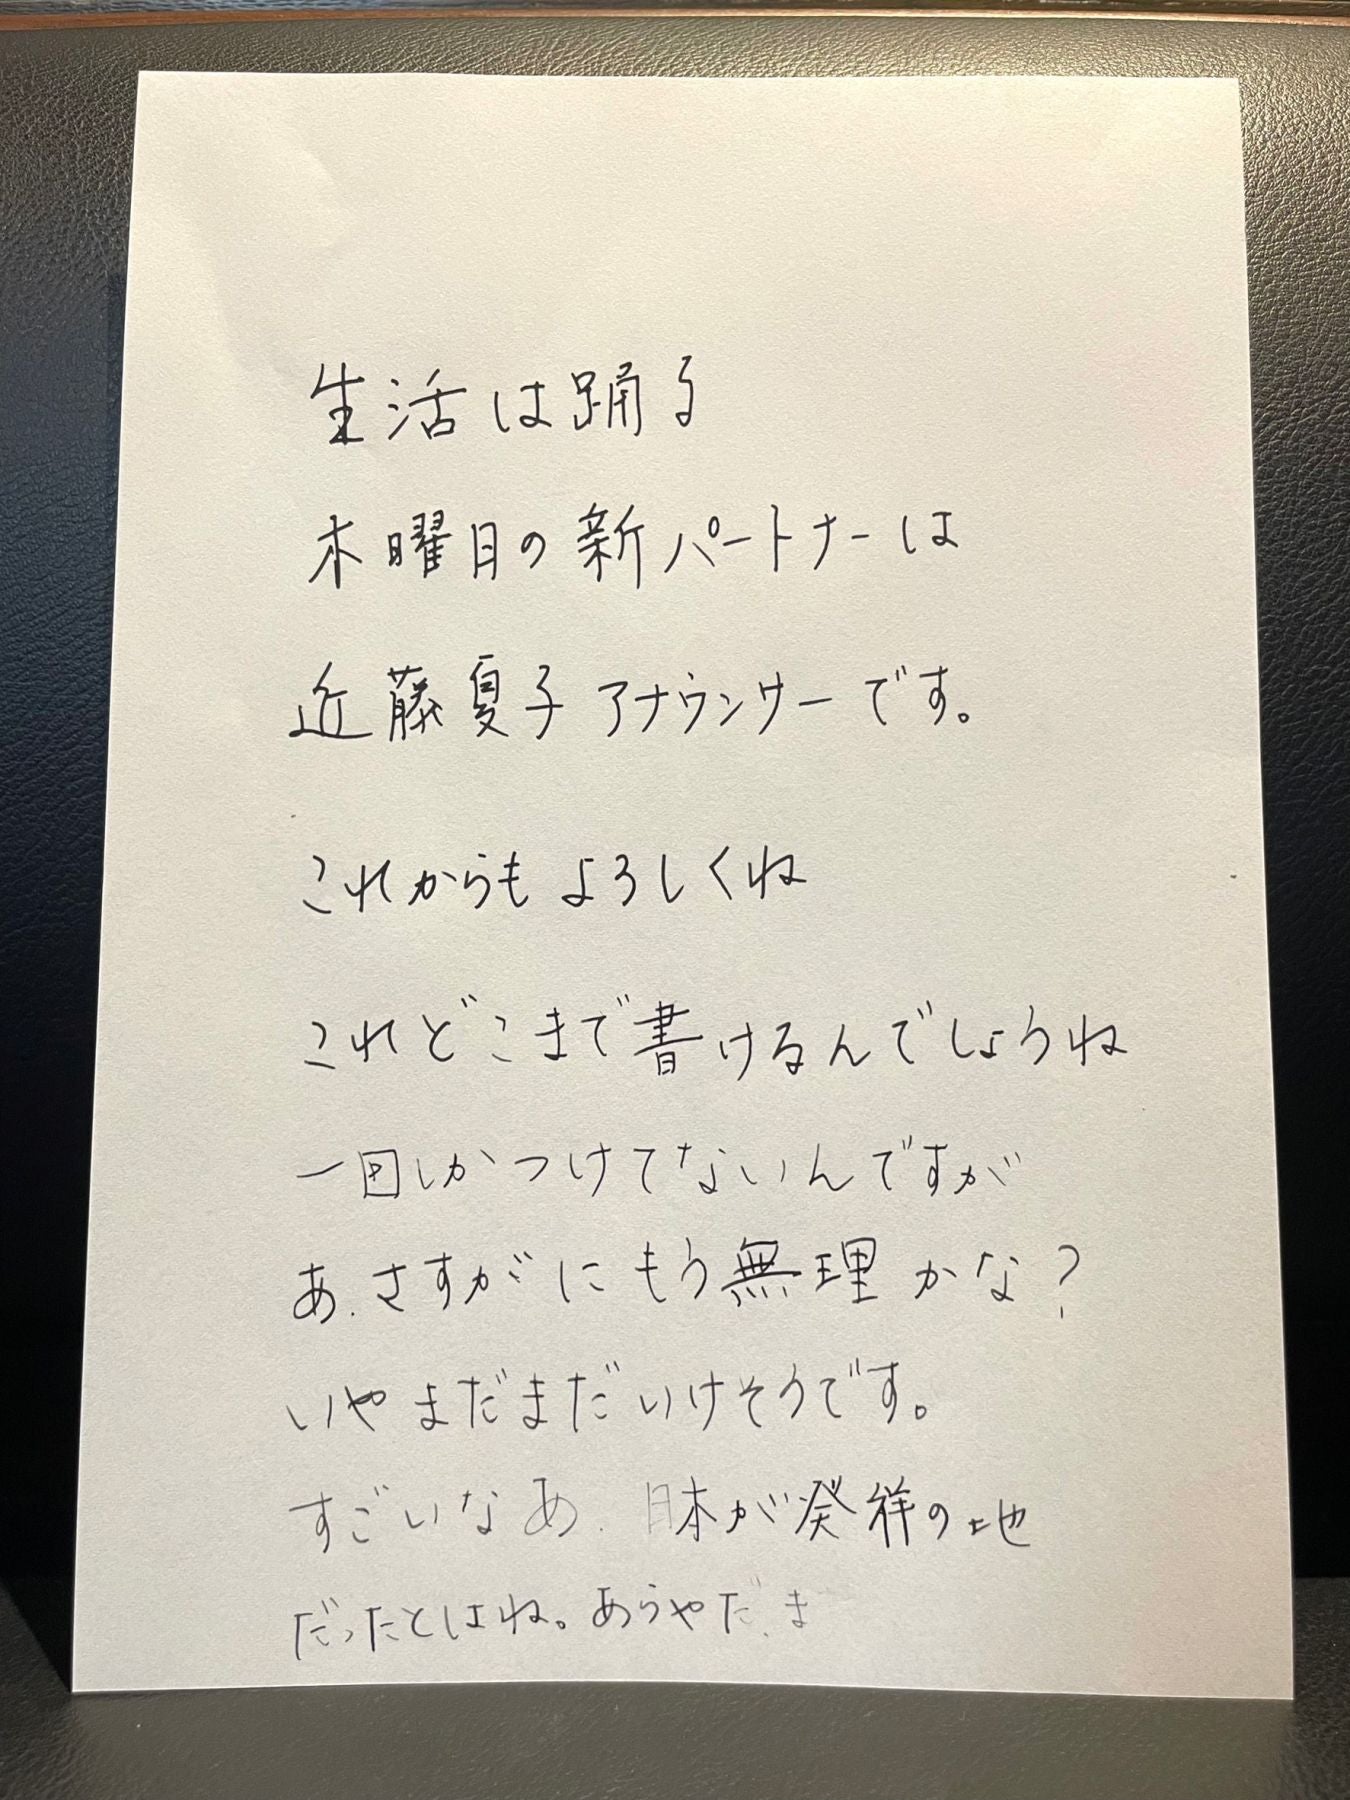 生活は踊る
木曜日の新パートナーは
近藤夏子アナウンサーです。
これからもよろしくね
これどこまで書けるんでしょうね
一回しかつけてないんですが
あ、さすがにもう無理かな?
いやまだまだいけそうです。
すごいなあ、日本が発祥の地
だったとはね。あらやだ、ま